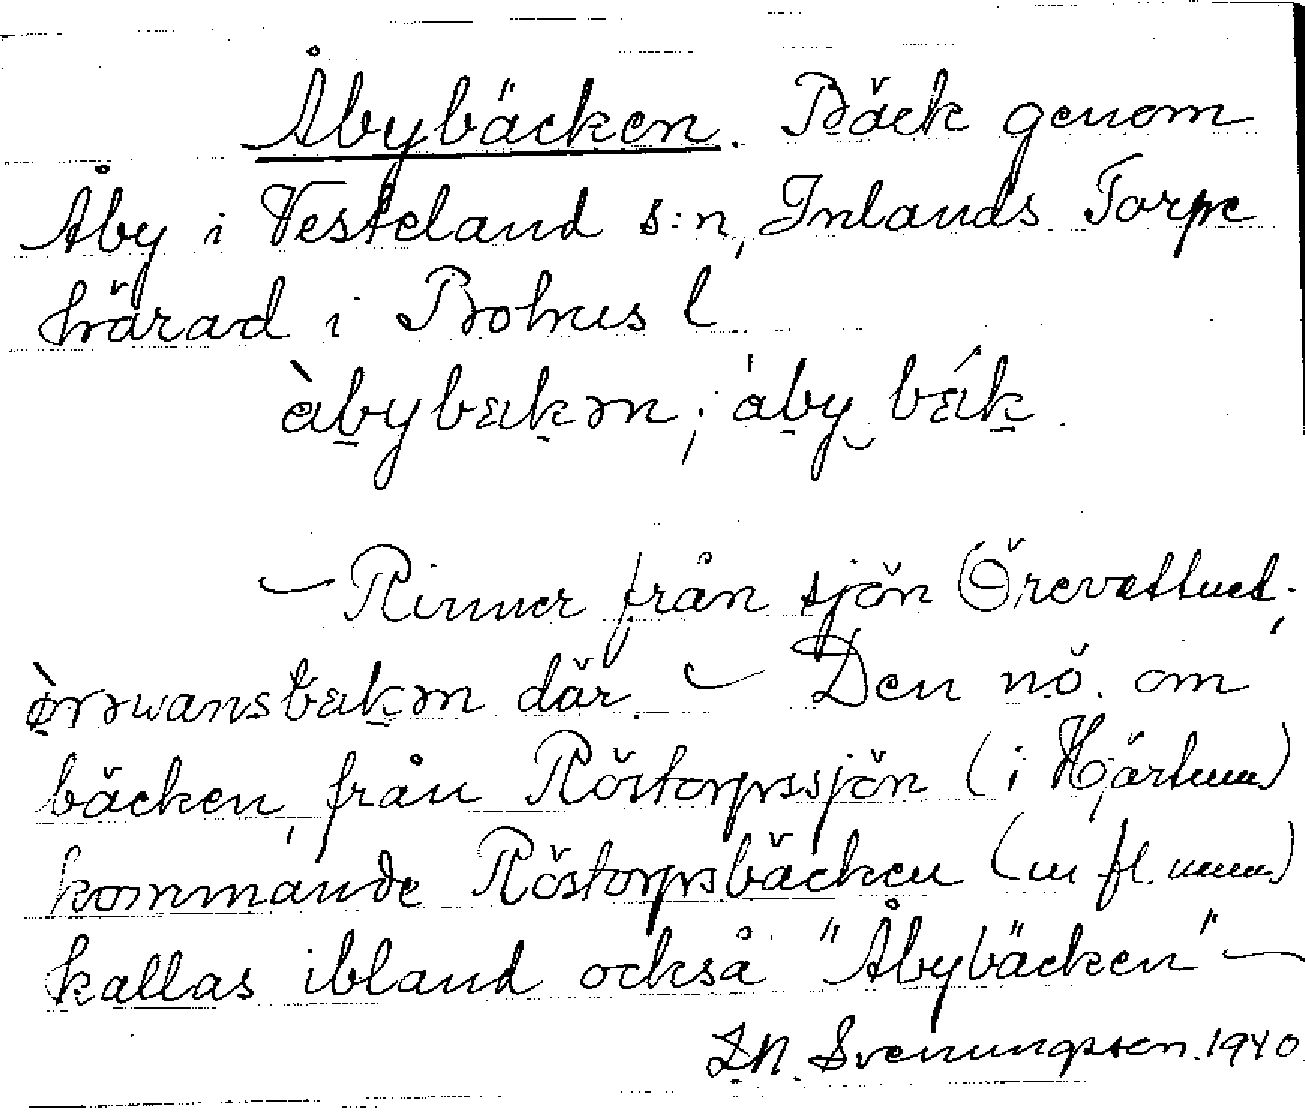 Åbybäcken. Bäck genom
Åby i Vesteland s:n, Inlands Torpe
härad i Bohus l
àbybækən; áby bǽk.
– Rinner från sjön Örevattnet;
ø̀rəwansbækən där. – Den n.ö. om
bäcken, från Röstorpssjön (i Hjärtum)
kommande Röstorpsbäcken (m fl. namn)
kallas ibland också "Åbybäcken" –
Svenungsson. 1940